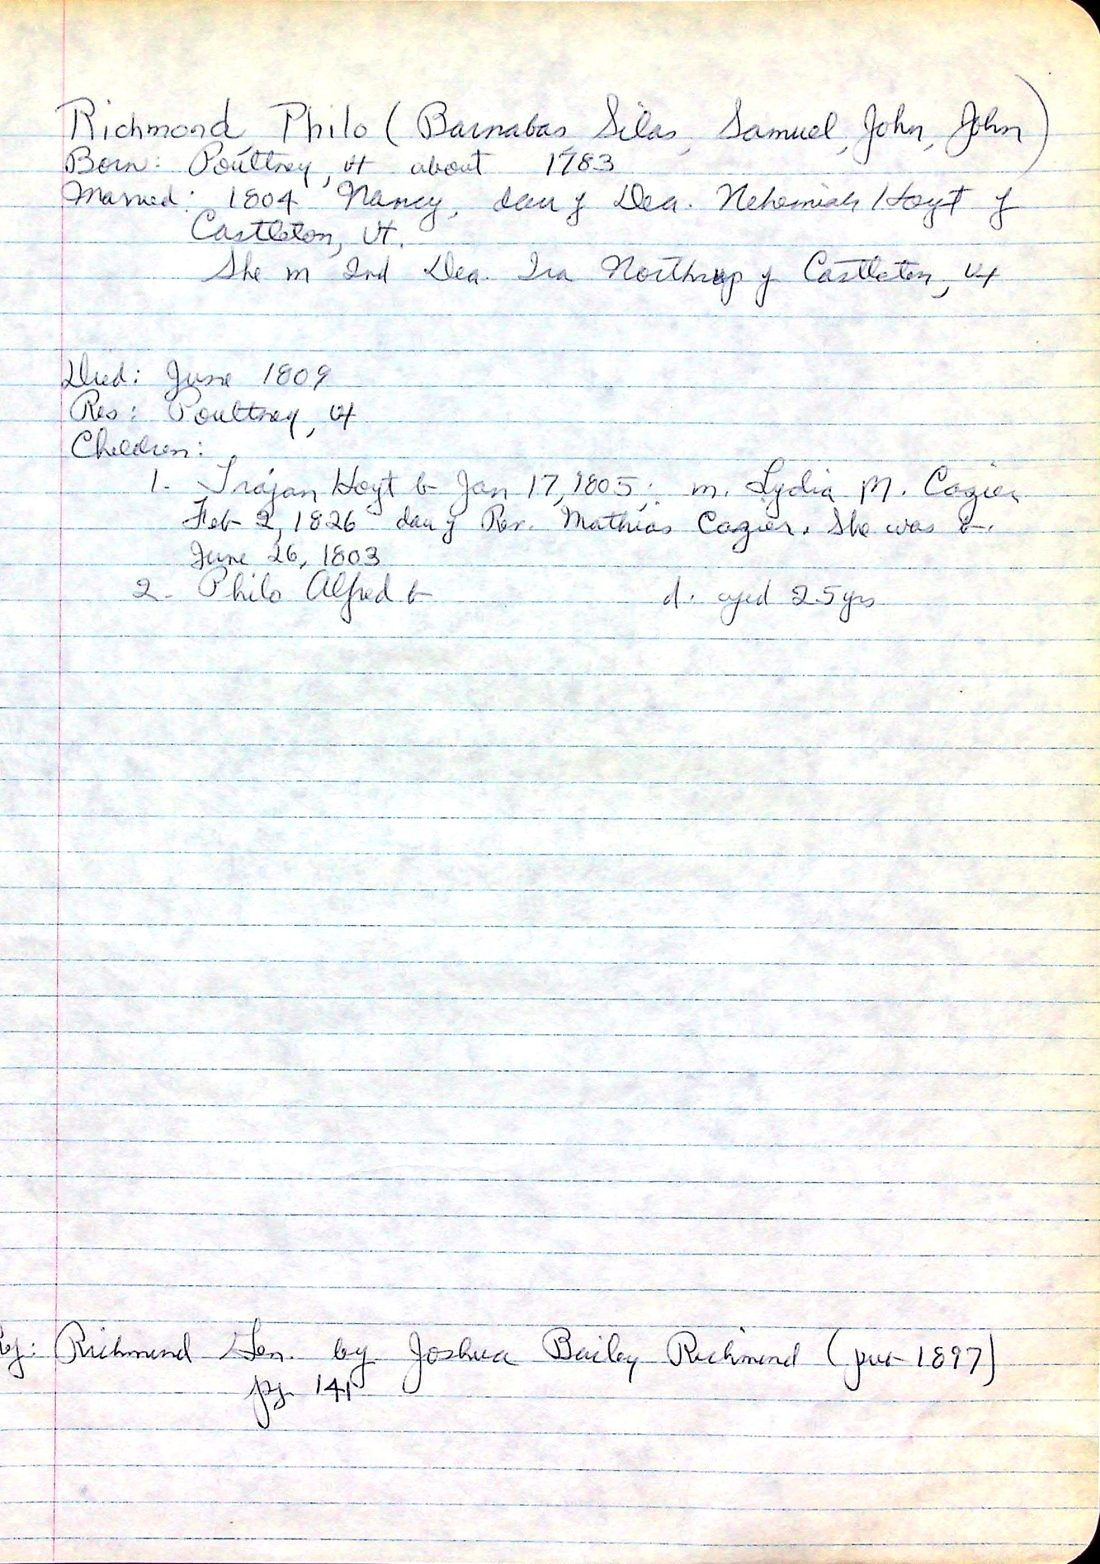 Richmond Philo (Barnabas, Silas, Samuel, John, John)
Born: Poultney, Vt about 1783
Married: 1804 Nancy, dau of Dea. Nehemiah Hoyt of
Castleton, Vt.
She m 2nd Dea. Ira Northrup of Castleton, Vt
Died: June 1809
Res: Poultney, Vt
Children:
1. Trajan Hoyt b Jan 17, 1805; m. Lydia M. Cazier
Feb 2, 1826 dau of Rev. Mathias Cazier. She was b.
June 26, 1803
2. Philo Alfred b d. aged 25 yrs
Ref: Richmond Gen. by Joshua Bailey Richmond (pub 1897)
pg. 141